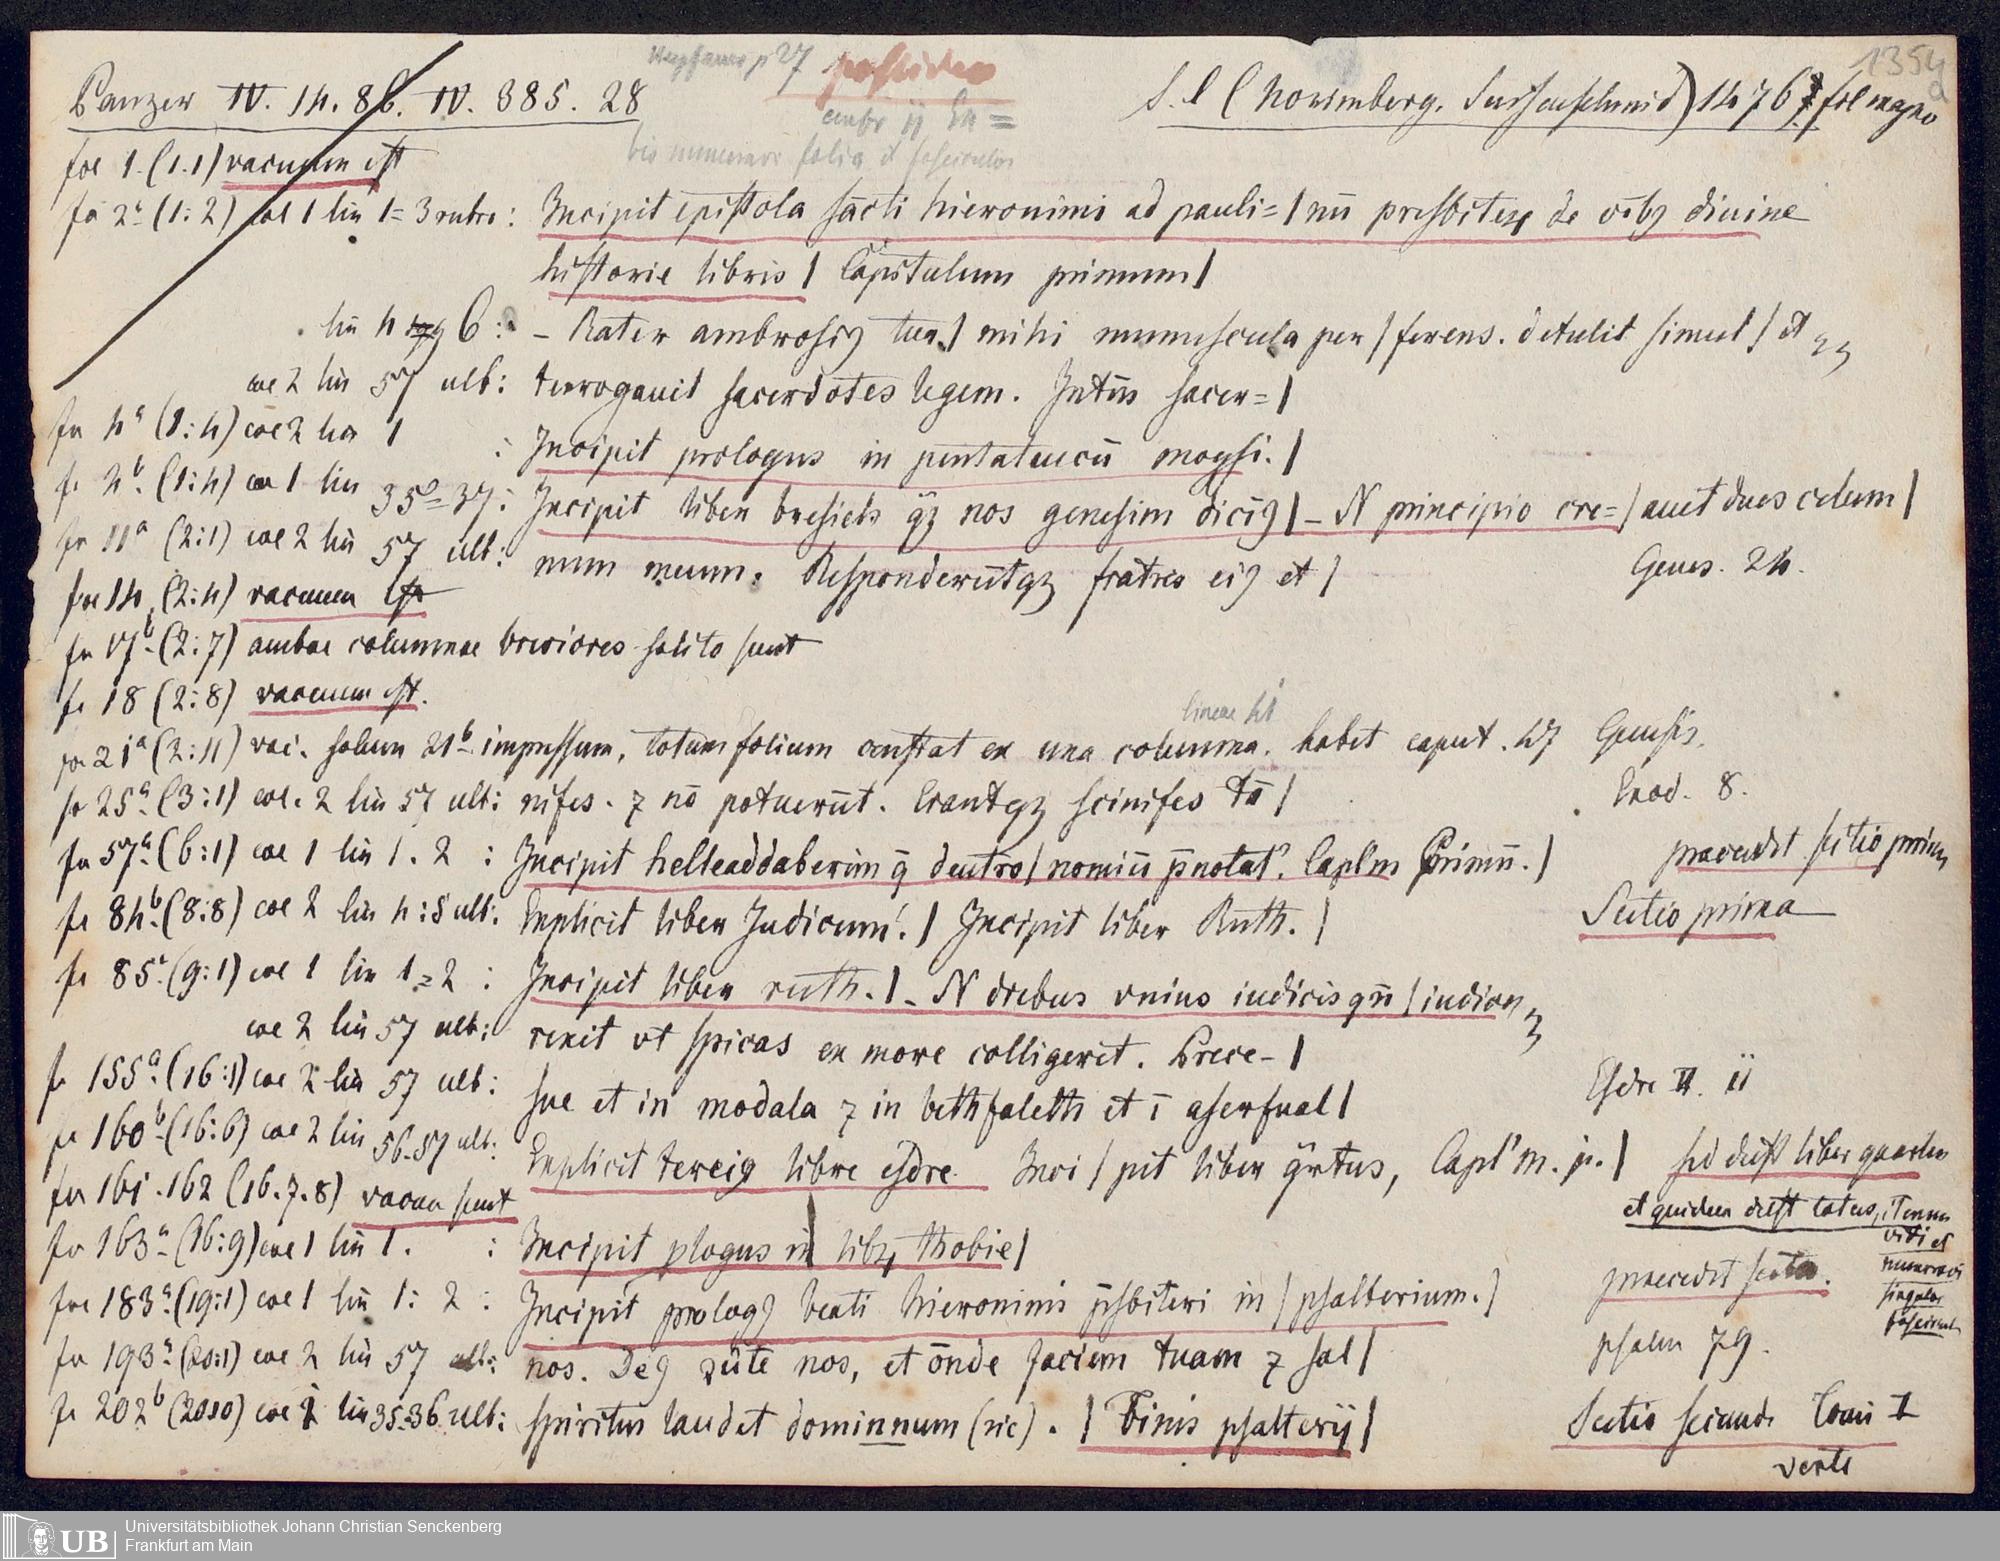 1354
Panzer IV. 14. 86. IV. 385. 28
S. l (Norimberg. Sensenschmid) 1476 fol magno
bis numeravi folia et fasciculos
fol 1. (1.1) vacuum est
fo 2a (1:2) col 1 lin 1=3 rubro: Incipit epistola sācti hieronimi ad pauli=/nū presbiteʒ de oībꝫ diuine
historie libris / Capitulum primum /
lin 4 6: – Rater ambrosiꝰ tua / mihi munuscula per / ferens. detulit simul / et
col 2 lin 57 ult: terrogauit sacerdotes legem. Intūs sacer=/
fo 4a (1:4) col 2 lin 1 : Incipit prologus in pentateucū moysi. /
fo 4b (1:4) col 1 lin 35=37: Incipit liber bresieth qꝫ nos genesim dicīꝰ / – N principio cre=/auit deus celum /
fo 11a (2:1) col 2 lin 57 ult: num meum. Responderūtqꝫ fratres eiꝰ et / Genes. 24.
fol 14 (2:4) vacuum est
fo 17b (2:7) ambae columnae breviores solito sunt
fo 18 (2:8) vacuum est.
lineae 41
fo 21a (2:11) vac. solum 21b impressum, totum folium constat ex una columna. habet caput. 47 Genesis.
fo 25a (3:1) col. 2 lin 57 ult: nifes. ⁊ nō potuerūt. Erantqꝫ scinifes tā / Exod. 8.
fo 57a (6:1) col 1 lin 1. 2 : Incipit helleaddaberim q̄ deutro/nomiū p̄notat᷒. Caplm Primū. / praecedit sectio prima
fo 84b (8:8) col 2 lin 4:5 ult: Explicit liber Judicum. / Incipit liber Ruth. / Sectio prima
fo 85a (9:1) col 1 lin 1=2 : Incipit liber ruth. / – N diebus vnius iudicis qn̄ / iudices
col 2 lin 57 ult: rexit vt spicas ex more colligeret. Prece- /
fo 155a (16:1) col 2 lin 57 ult: sue et in modala ⁊ in bethfaleth et ī aserfual / Esdre II. ii
fo 160b (16:6) col 2 lin 56-57 ult: Explicit terciꝰ libre esdre Inci / pit liber q̄rtus, Capl'm. p. / sed deest liber quartus
et quidem deest totus, iterum
vidi et
numeravi
singulos
fascicul
fol 161. 162 (16.7.8) vacua sunt
fo 163a (16:9) col 1 lin 1. : Incipit plogus in libꝝ thobie / praecedit sexta.
fol 183a (19:1) col 1 lin 1: 2 : Incipit prologꝰ beati hieronimi p̄sbiteri in / psalterium. /
fo 193a (20:1) col 2 lin 57 ult: nos. Deꝰ v̄tute nos, et ōnde faciem tuam ⁊ sal / psalm 79.
fo 202b (20:10) col 1 lin 35-36 ult: spiritus laudet dominnum (sic). / Finis psalterij / Sectio secunda Tomi I
verte
Universitätsbibliothek Johann Christian Senckenberg
Frankfurt am Main
UB